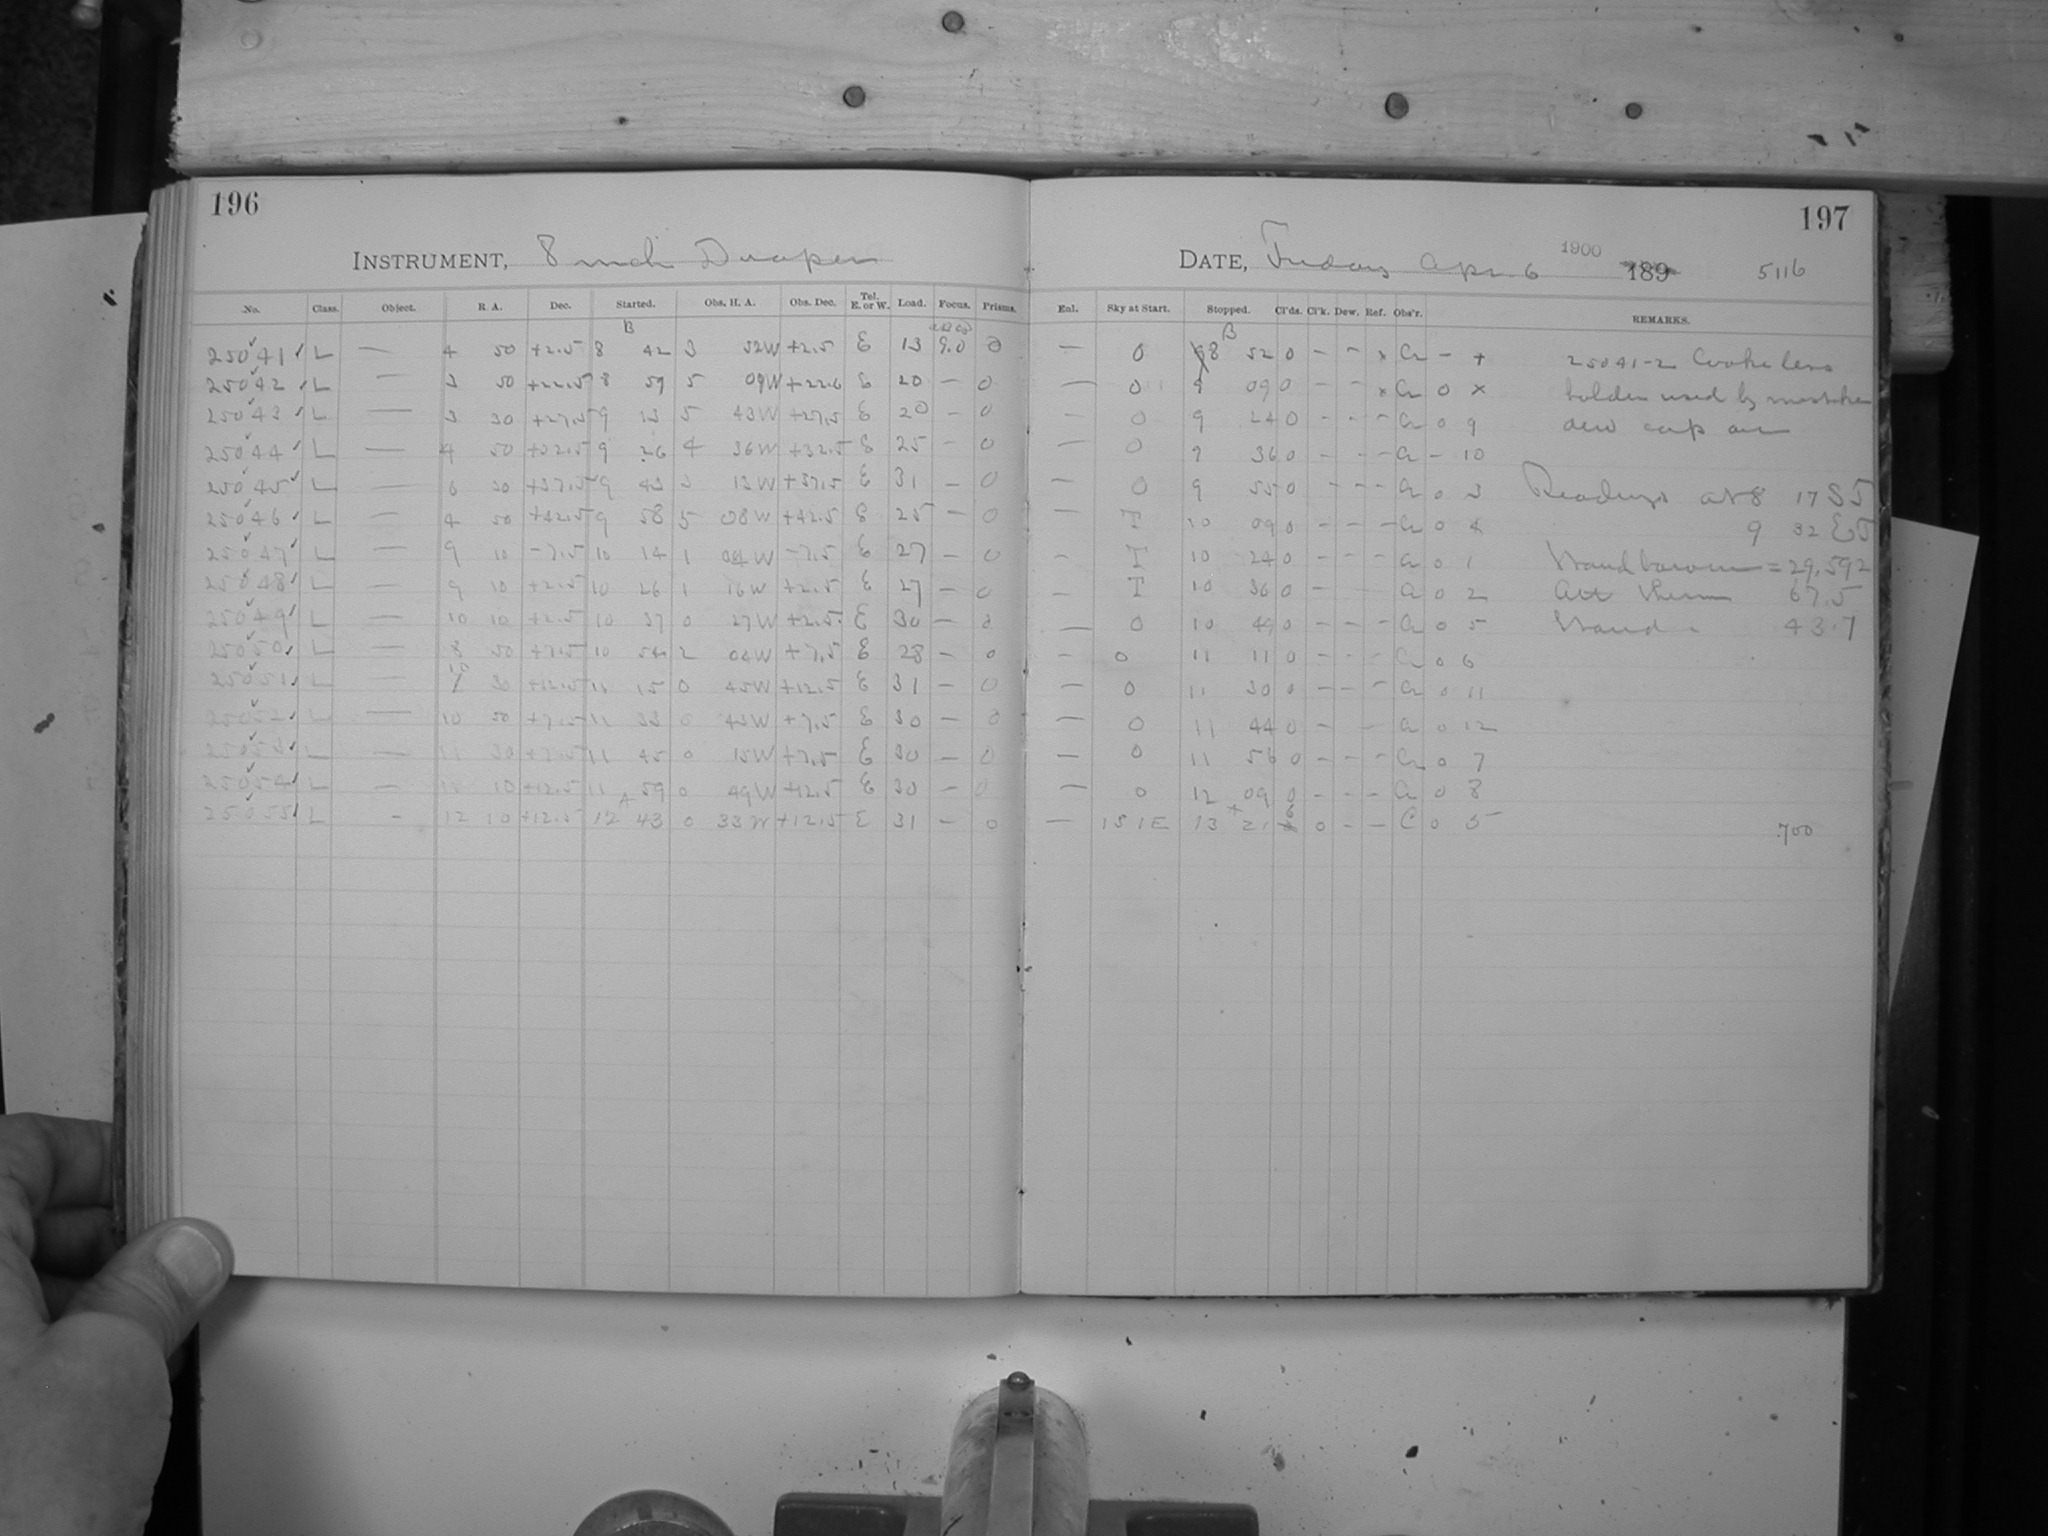 196
197
INSTRUMENT, 8 inch Draper
DATE, Friday Apr 6 1900 189 5116
No. Class. Object. R. A. Dec. Started. Obs. H. A. Obs. Dec. Tel. E. or W. Load. Focus. Prisms. Enl. Sky at Start. Stopped. Cl'ds. Cl'k. Dew. Ref. Obs'r. REMARKS.
B B
25041 L — 4 50 +2.5 8 42 3 52W +2.5 E 13 9.0 0 — 0 8 52 0 - - x - + 25041-2 Cooke lens
25042 L — 3 50 +22.5 8 59 5 09W +22.6 E 20 — 0 — 0 9 09 0 - - x 0 x holder used by mistake
25043 L — 3 30 +27.5 9 13 5 43W +27.5 E 20 - 0 - 0 9 24 0 - - - 0 9 dew cap on
25044 L — 4 50 +32.5 9 26 4 36W +32.5 E 25 - 0 — 0 9 36 0 - - - - 10
25045 L — 6 30 +37.5 9 43 3 13W +37.5 E 31 - 0 - 0 9 55 0 - - - 0 3 Readings at 8 17 ST
25046 L — 4 50 +42.5 9 58 5 08W +42.5 E 25 — 0 — T 10 09 0 - - - 0 4 9 32 ET
25047 L — 9 10 -7.5 10 14 1 04W -7.5 E 27 - 0 - T 10 24 0 - - - 0 1 Stand barom = 29.592
25048 L — 9 10 +2.5 10 26 1 16W +2.5 E 27 - 0 - T 10 36 0 - - 0 2 Att Therm 67.5
25049 L — 10 10 +2.5 10 37 0 27W +2.5 E 30 — 0 — 0 10 49 0 - - - 0 5 Stand " 43.7
25050 L — 8 50 +7.5 10 54 2 04W +7.5 E 28 - 0 - 0 11 11 0 - - - 0 6
25051 L — 10 30 +12.5 11 15 0 45W +12.5 E 31 - 0 — 0 11 30 0 - - - 0 11
25052 L — 10 50 +7.5 11 33 0 43W +7.5 E 30 - 0 — 0 11 44 0 - - 0 12
25053 L — 11 30 +7.5 11 45 0 15W +7.5 E 30 - 0 — 0 11 56 0 - - - 0 7
25054 L — 11 10 +12.5 11 59 0 49W +12.5 E 30 - 0 — 0 12 09 0 - - - 0 8
25055 L - 12 10 +12.5 12 43 0 33W +12.5 E 31 - 0 — 151E 13 21 6 0 - - C 0 5 700